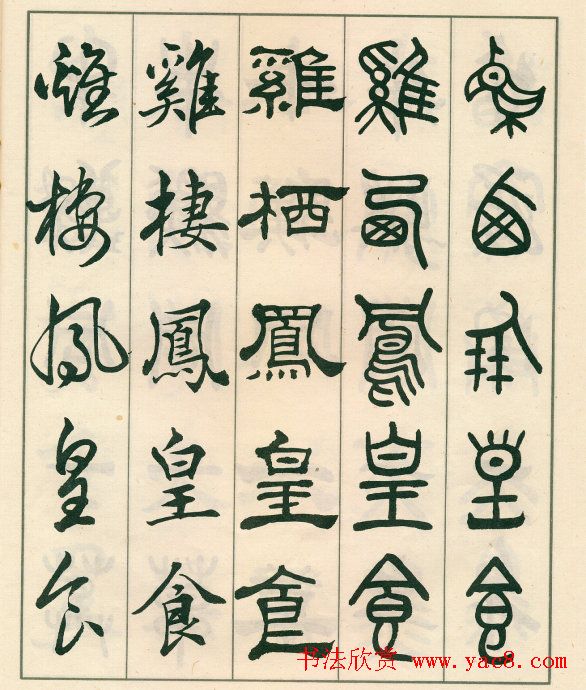 雞棲鳳皇食
雞棲鳳皇食
雞栖鳳皇食
雞棲鳳皇食
雞棲鳳皇食
书法欣赏 www.yac8.com